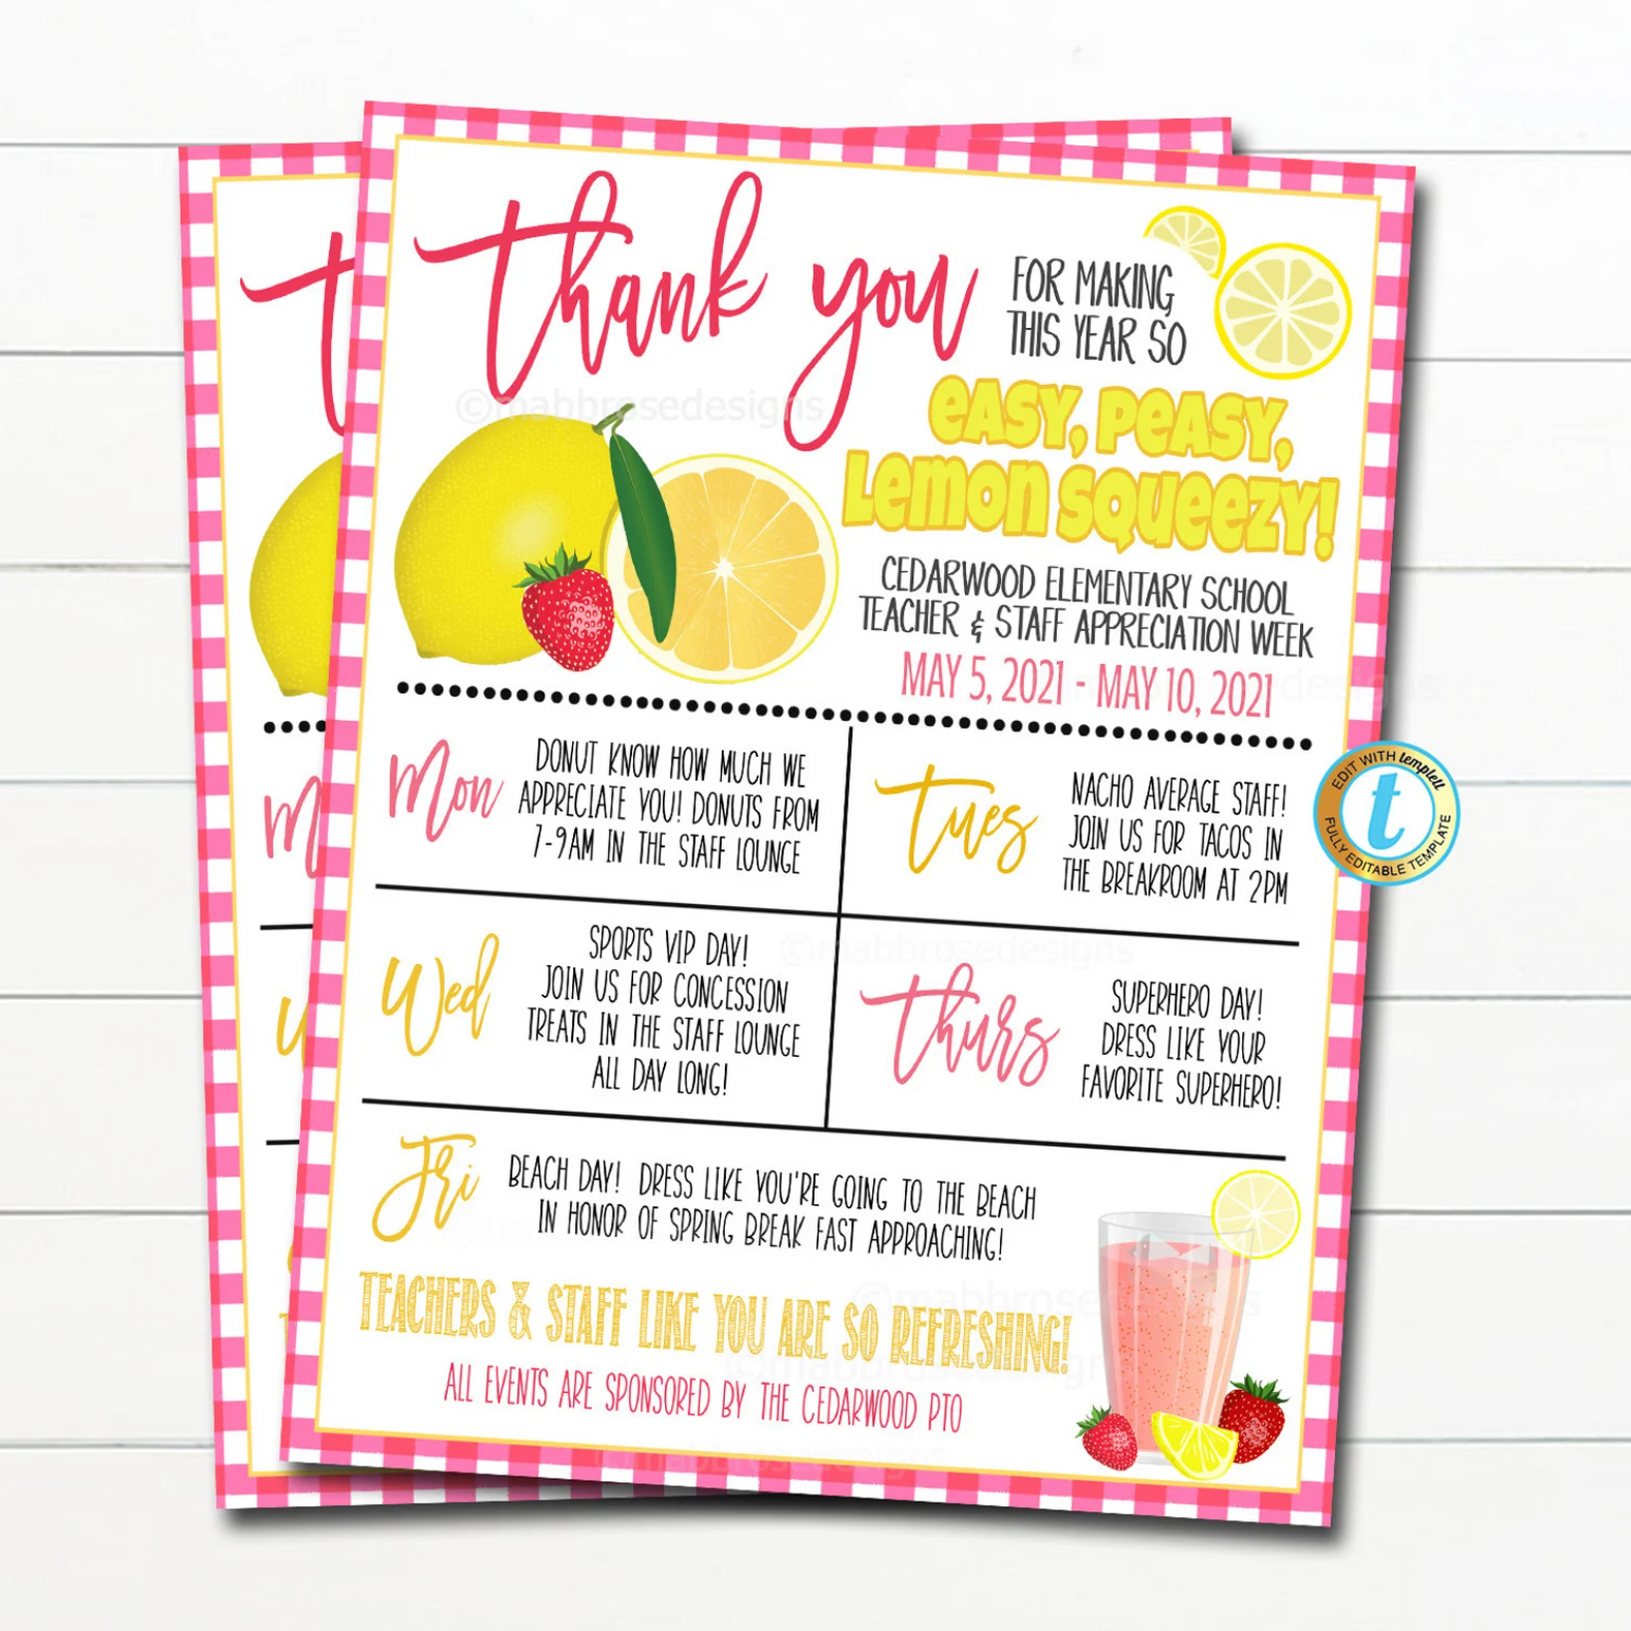 thank you
FOR MAKING
THIS YEAR SO
EASY, PEASY,
LEMON SQUEEZY!
CEDARWOOD ELEMENTARY SCHOOL
TEACHER & STAFF APPRECIATION WEEK
MAY 5, 2021 - MAY 10, 2021
Mon
DONUT KNOW HOW MUCH WE
APPRECIATE YOU! DONUTS FROM
7-9AM IN THE STAFF LOUNGE
Tues
NACHO AVERAGE STAFF!
JOIN US FOR TACOS IN
THE BREAKROOM AT 2PM
Wed
SPORTS VIP DAY!
JOIN US FOR CONCESSION
TREATS IN THE STAFF LOUNGE
ALL DAY LONG!
Thurs
SUPERHERO DAY!
DRESS LIKE YOUR
FAVORITE SUPERHERO!
Fri
BEACH DAY! DRESS LIKE YOU'RE GOING TO THE BEACH
IN HONOR OF SPRING BREAK FAST APPROACHING!
TEACHERS & STAFF LIKE YOU ARE SO REFRESHING!
ALL EVENTS ARE SPONSORED BY THE CEDARWOOD PTO
EDIT WITH templett
t
FULLY EDITABLE TEMPLATE
©mabbrosedesigns
©mabbrosedesigns